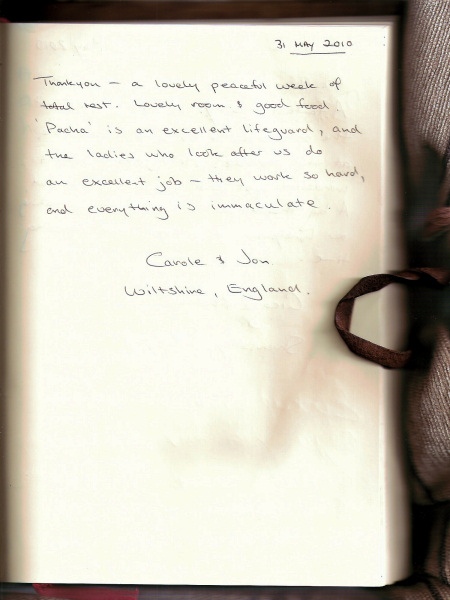 31 MAY 2010
Thankyou — a lovely peaceful week of
total rest. Lovely room & good food.
'Pacha' is an excellent lifeguard, and
the ladies who look after us do
an excellent job – they work so hard,
and everything is immaculate.
Carole & Jon
Wiltshire, England.